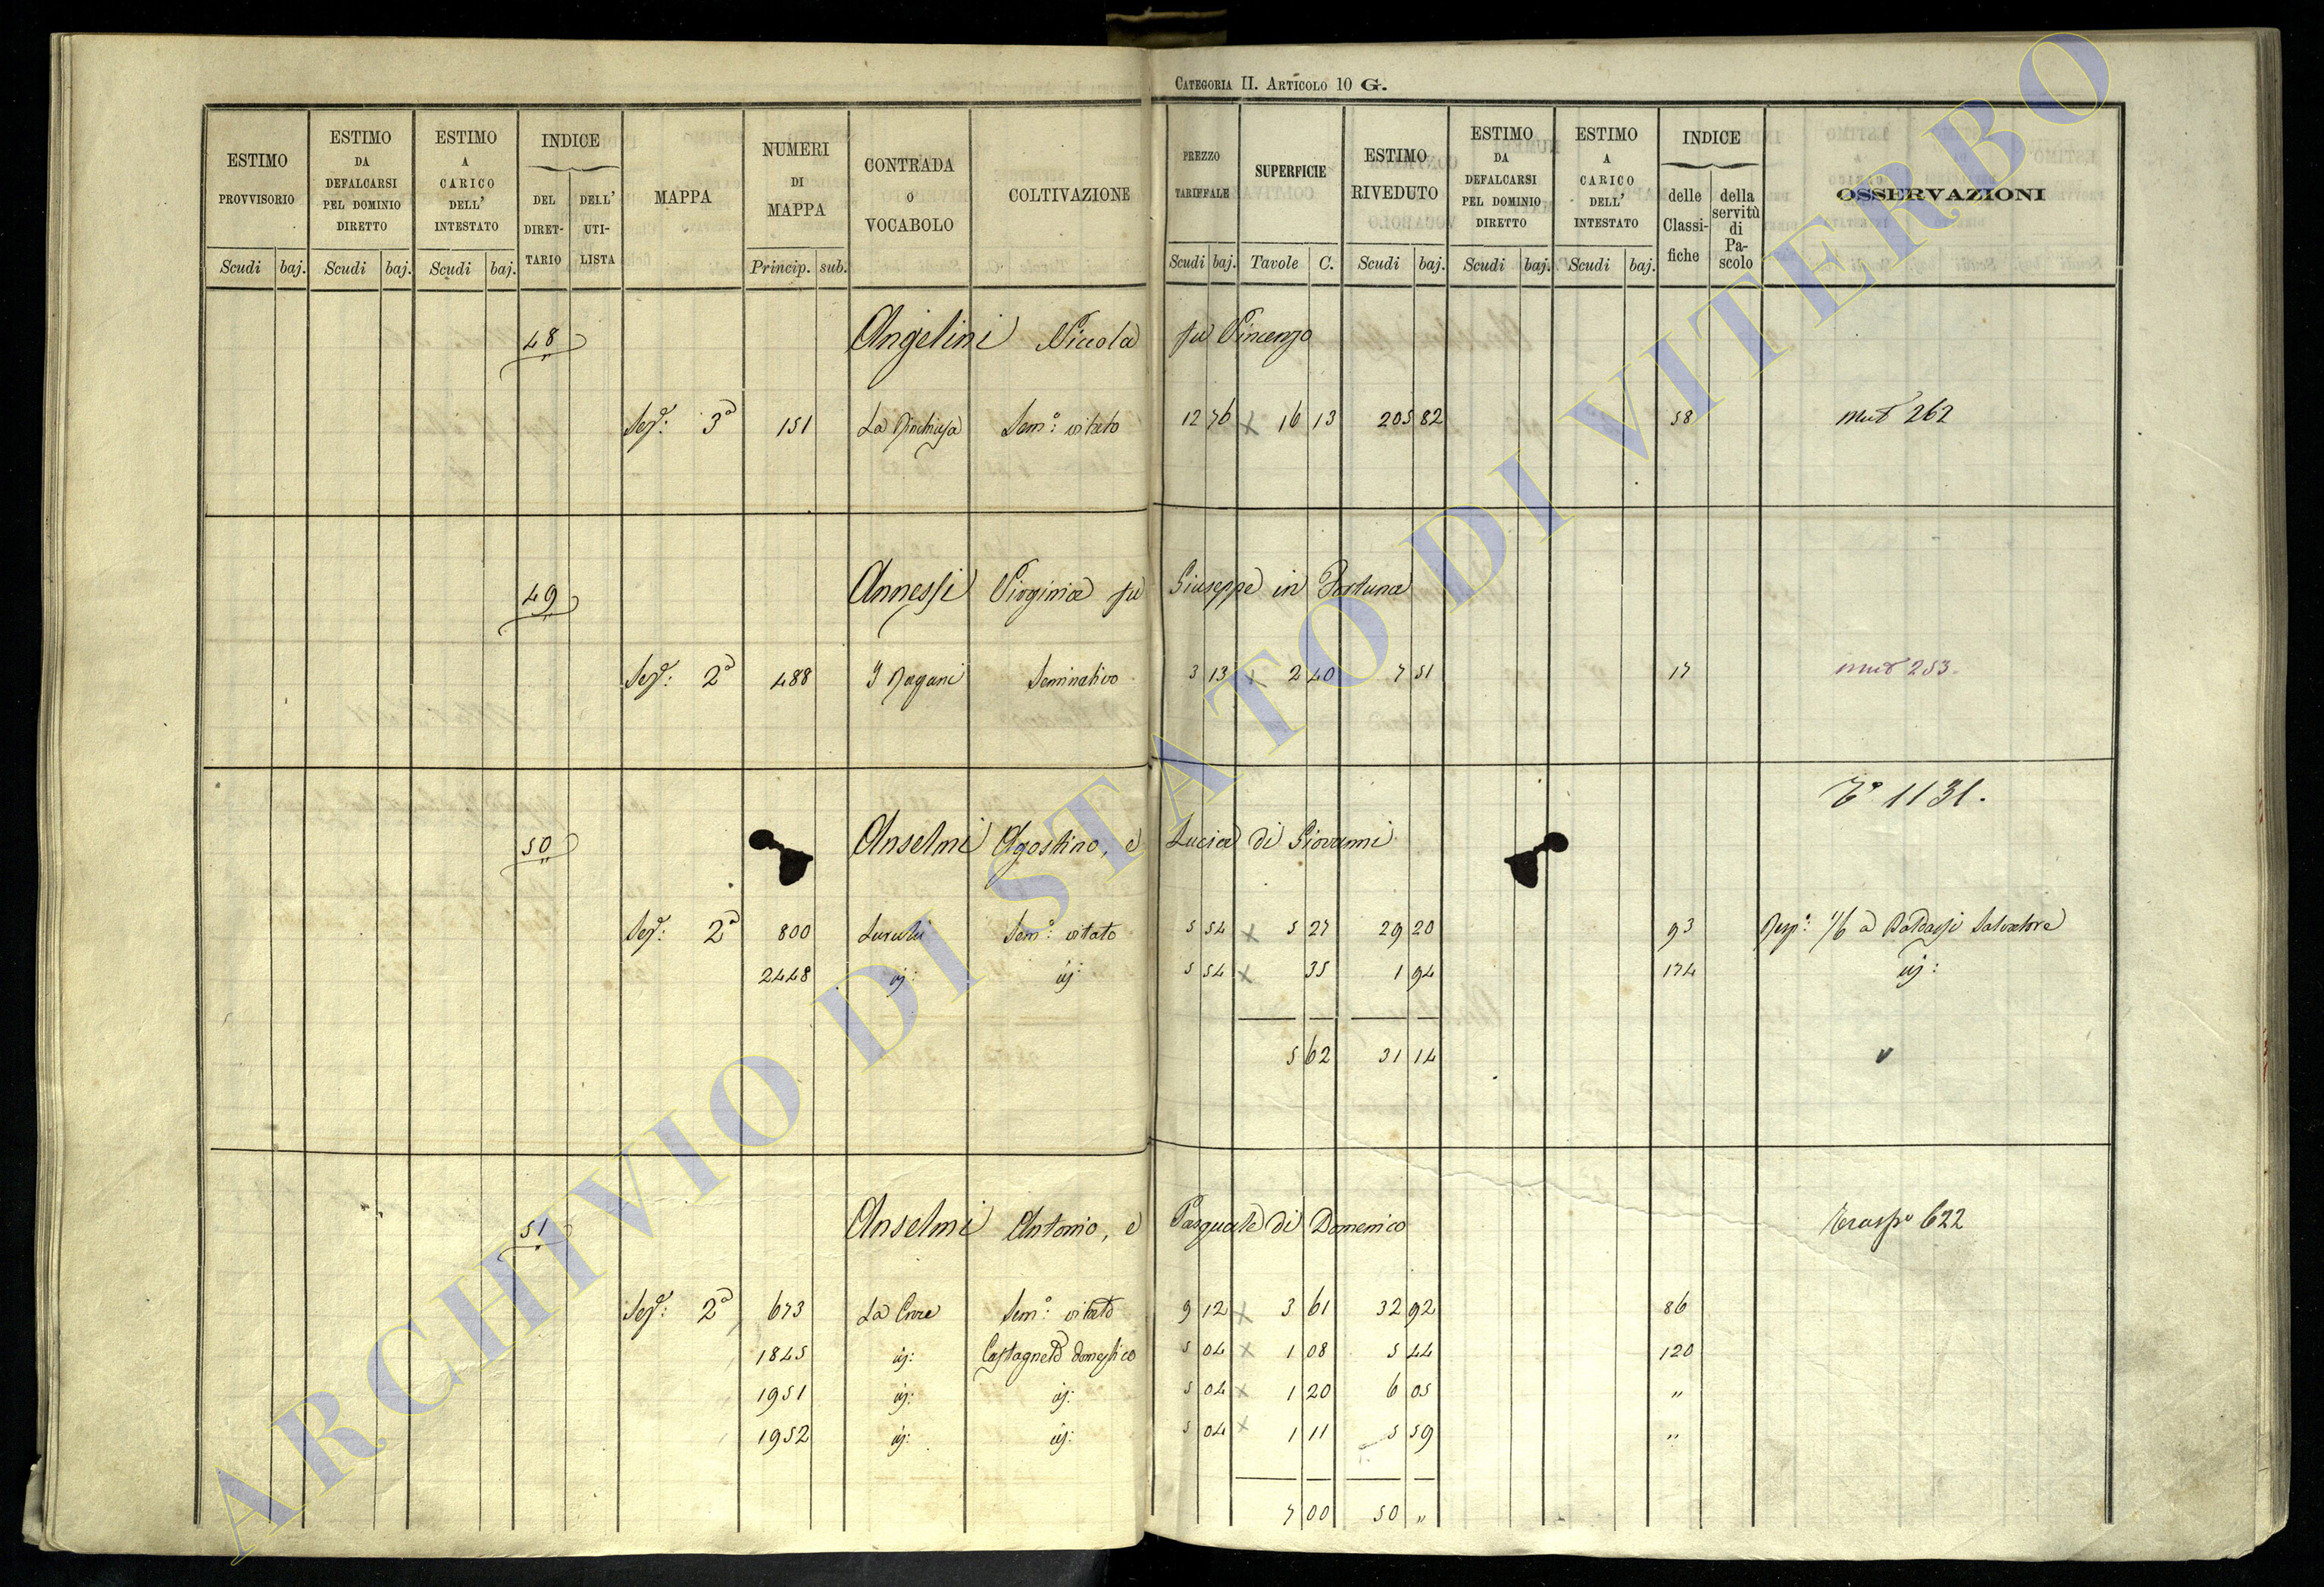 CATEGORIA II. ARTICOLO 10 G.
ESTIMO PROVVISORIO Scudi baj.
ESTIMO DA DEFALCARSI PEL DOMINIO DIRETTO Scudi baj.
ESTIMO A CARICO DELL' INTESTATO Scudi baj.
INDICE DEL DIRETTARIO DELL' UTILISTA
MAPPA
NUMERI DI MAPPA Princip. sub.
CONTRADA O VOCABOLO
COLTIVAZIONE
PREZZO TARIFFALE Scudi baj.
SUPERFICIE Tavole C.
ESTIMO RIVEDUTO Scudi baj.
ESTIMO DA DEFALCARSI PEL DOMINIO DIRETTO Scudi baj.
ESTIMO A CARICO DELL' INTESTATO Scudi baj.
INDICE delle Classifiche della servitù di Pascolo
OSSERVAZIONI
48 Angelini Niccola fu Vincenzo
Sez.e: 3a 151 La Sem.o: vitato 12 76 x 16 13 205 82 58 mut 262
49 Annessi Virginia fu Giuseppe in Fortuna
Sez.e: 2a 488 I Pagani Seminativo 3 13 x 2 40 7 51 17 mut 253
To 1131.
50 Anselmi Agostino, e Lucia di Giovanni
Sez.e: 2a 800 Sem.o: vitato 5 54 x 5 27 29 20 93 1/6 a Baldassi Salvatore
2448 iij: iij: 5 54 x 35 1 94 174 iij:
5 62 31 14
51 Anselmi Antonio, e Pasquale di Domenico Traspo 622
Sez.e: 2a 673 La Sem.o: vitato 9 12 x 3 61 32 92 86
1845 iij: Castagneto domestico 5 04 x 1 08 5 44 120
1951 iij: iij: 5 04 x 1 20 6 05 "
1952 iij: iij: 5 04 x 1 11 5 59 "
7 00 50 "
ARCHIVIO DI STATO DI VITERBO